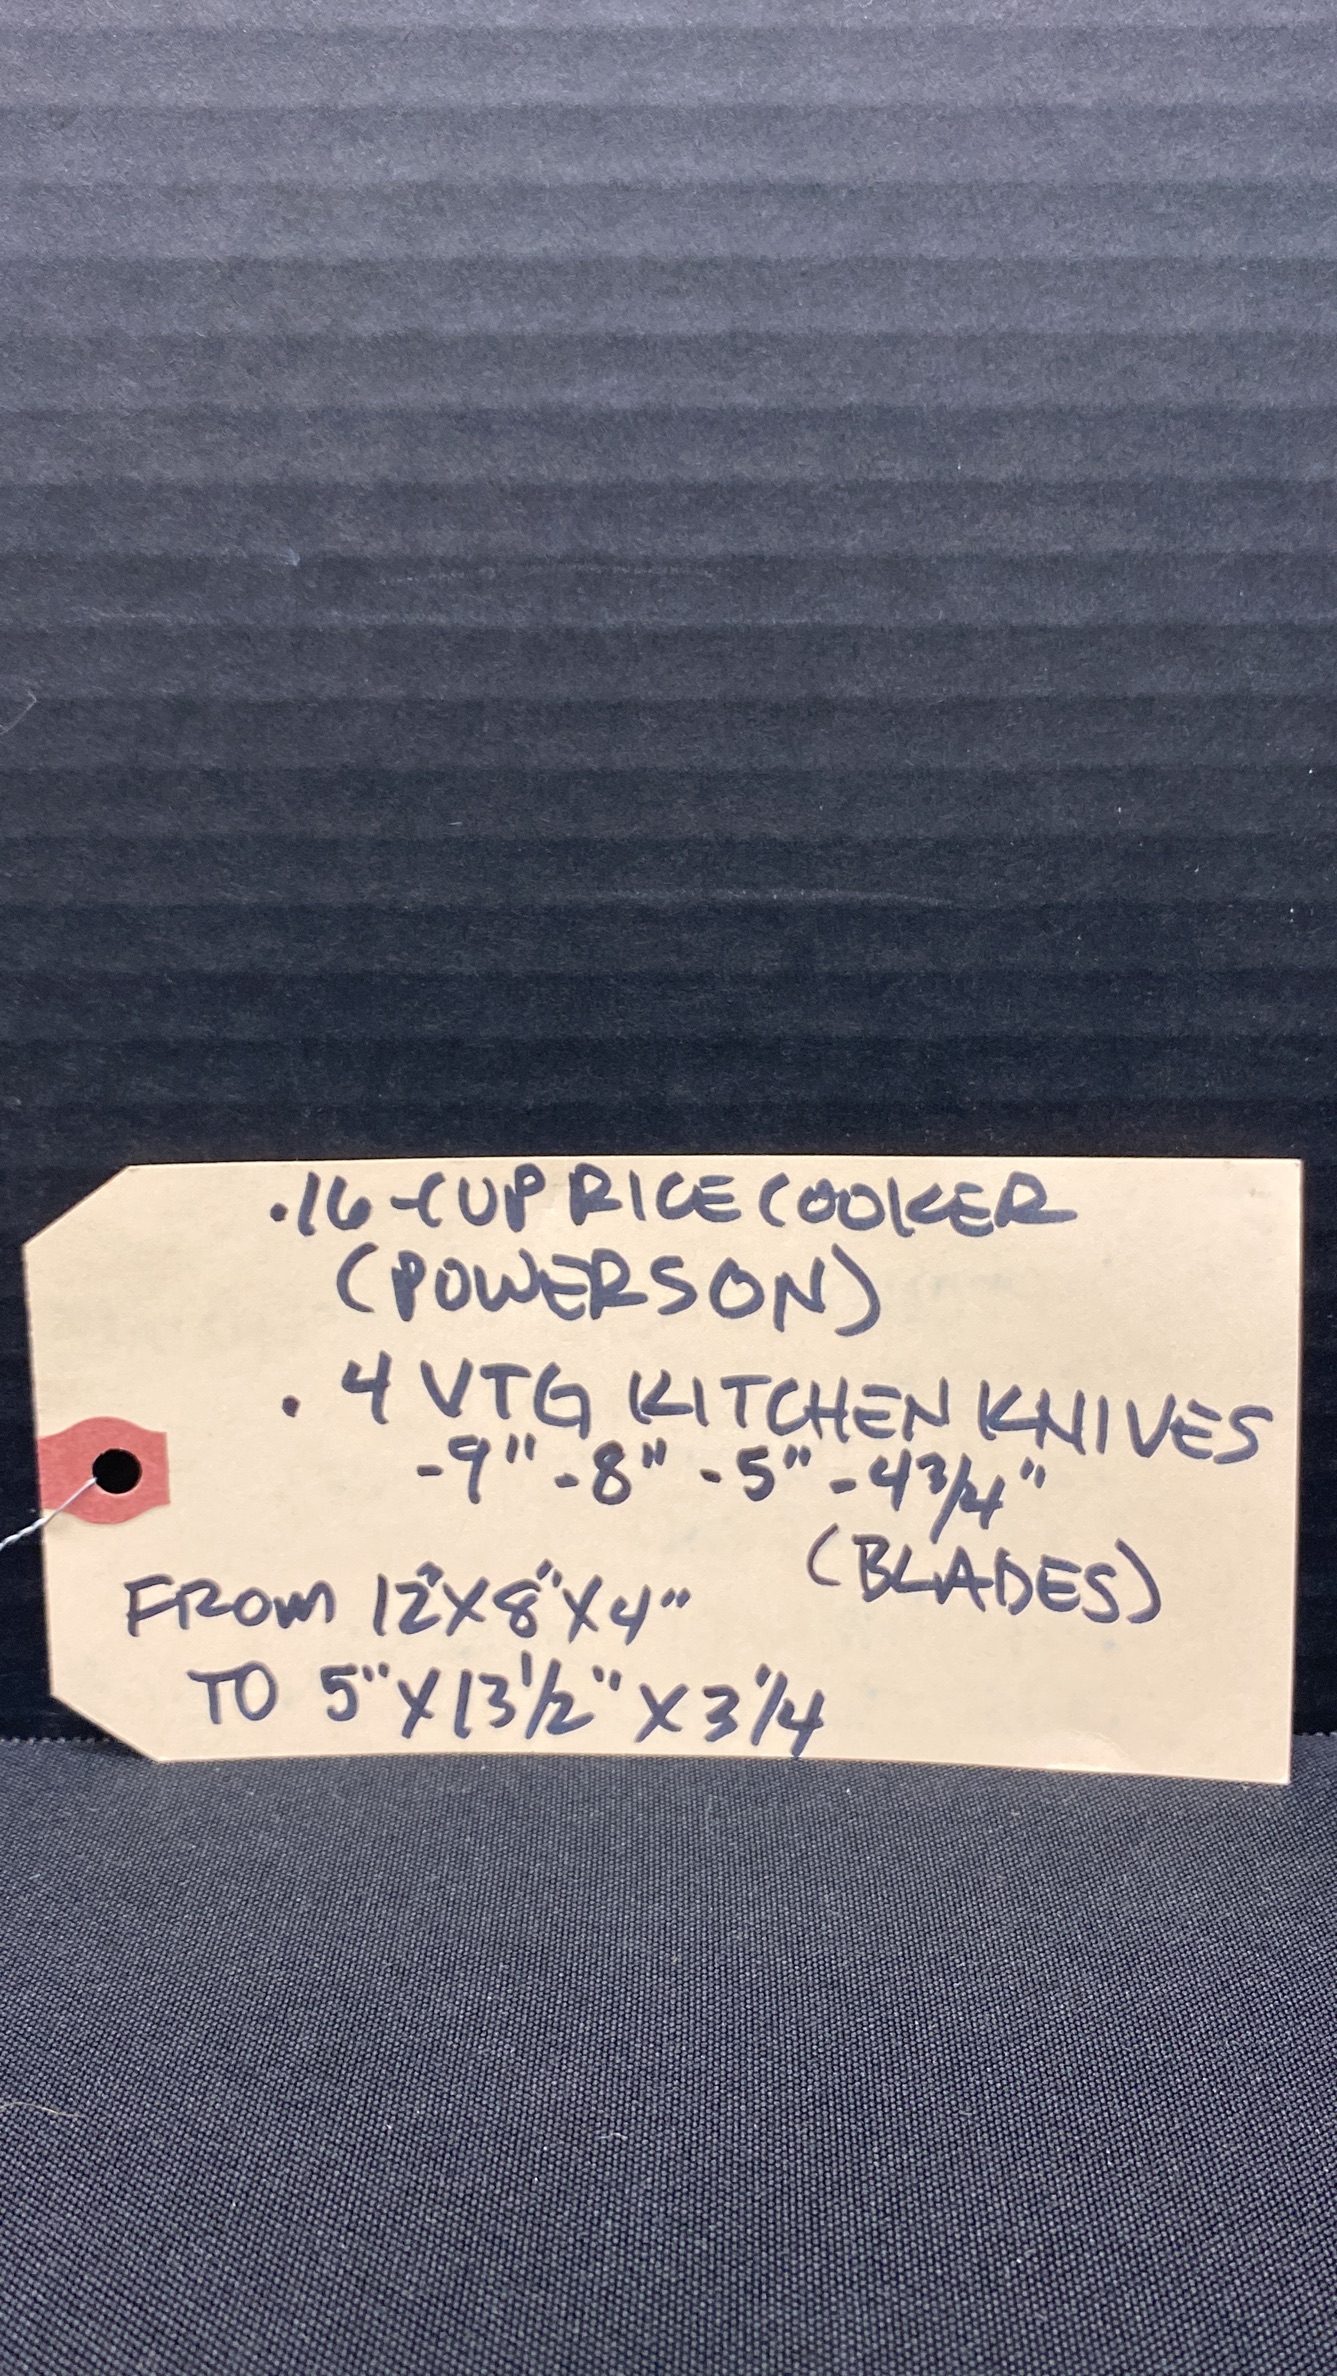 .16-CUP RICE COOKER
(POWERSON)
. 4 VTG KITCHEN KNIVES
-9" -8" -5" -4 3/4"
(BLADES)
FROM 12"X8"X4"
TO 5"X13 1/2"X3 1/4